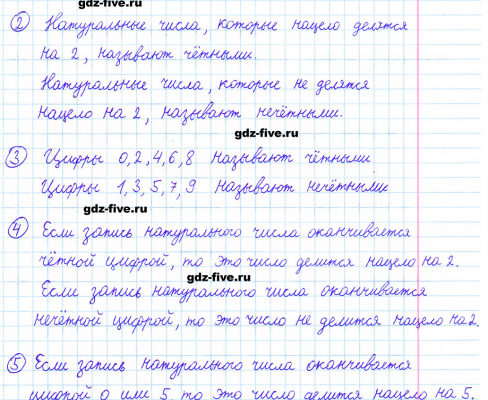 gdz-five.ru
2 Натуральные числа, которые нацело делятся
на 2, называют чётными.
Натуральные числа, которые не делятся
нацело на 2, называют нечётными.
gdz-five.ru
3 Цифры 0,2,4,6,8 называют чётными
Цифры 1,3,5,7,9 называют нечётными
gdz-five.ru
4 Если запись натурального числа оканчивается
чётной цифрой, то это число делится нацело на 2.
gdz-five.ru
Если запись натурального числа оканчивается
нечётной цифрой, то это число не делится нацело на 2.
5 Если запись натурального числа оканчивается
цифрой 0 или 5, то это число делится нацело на 5.